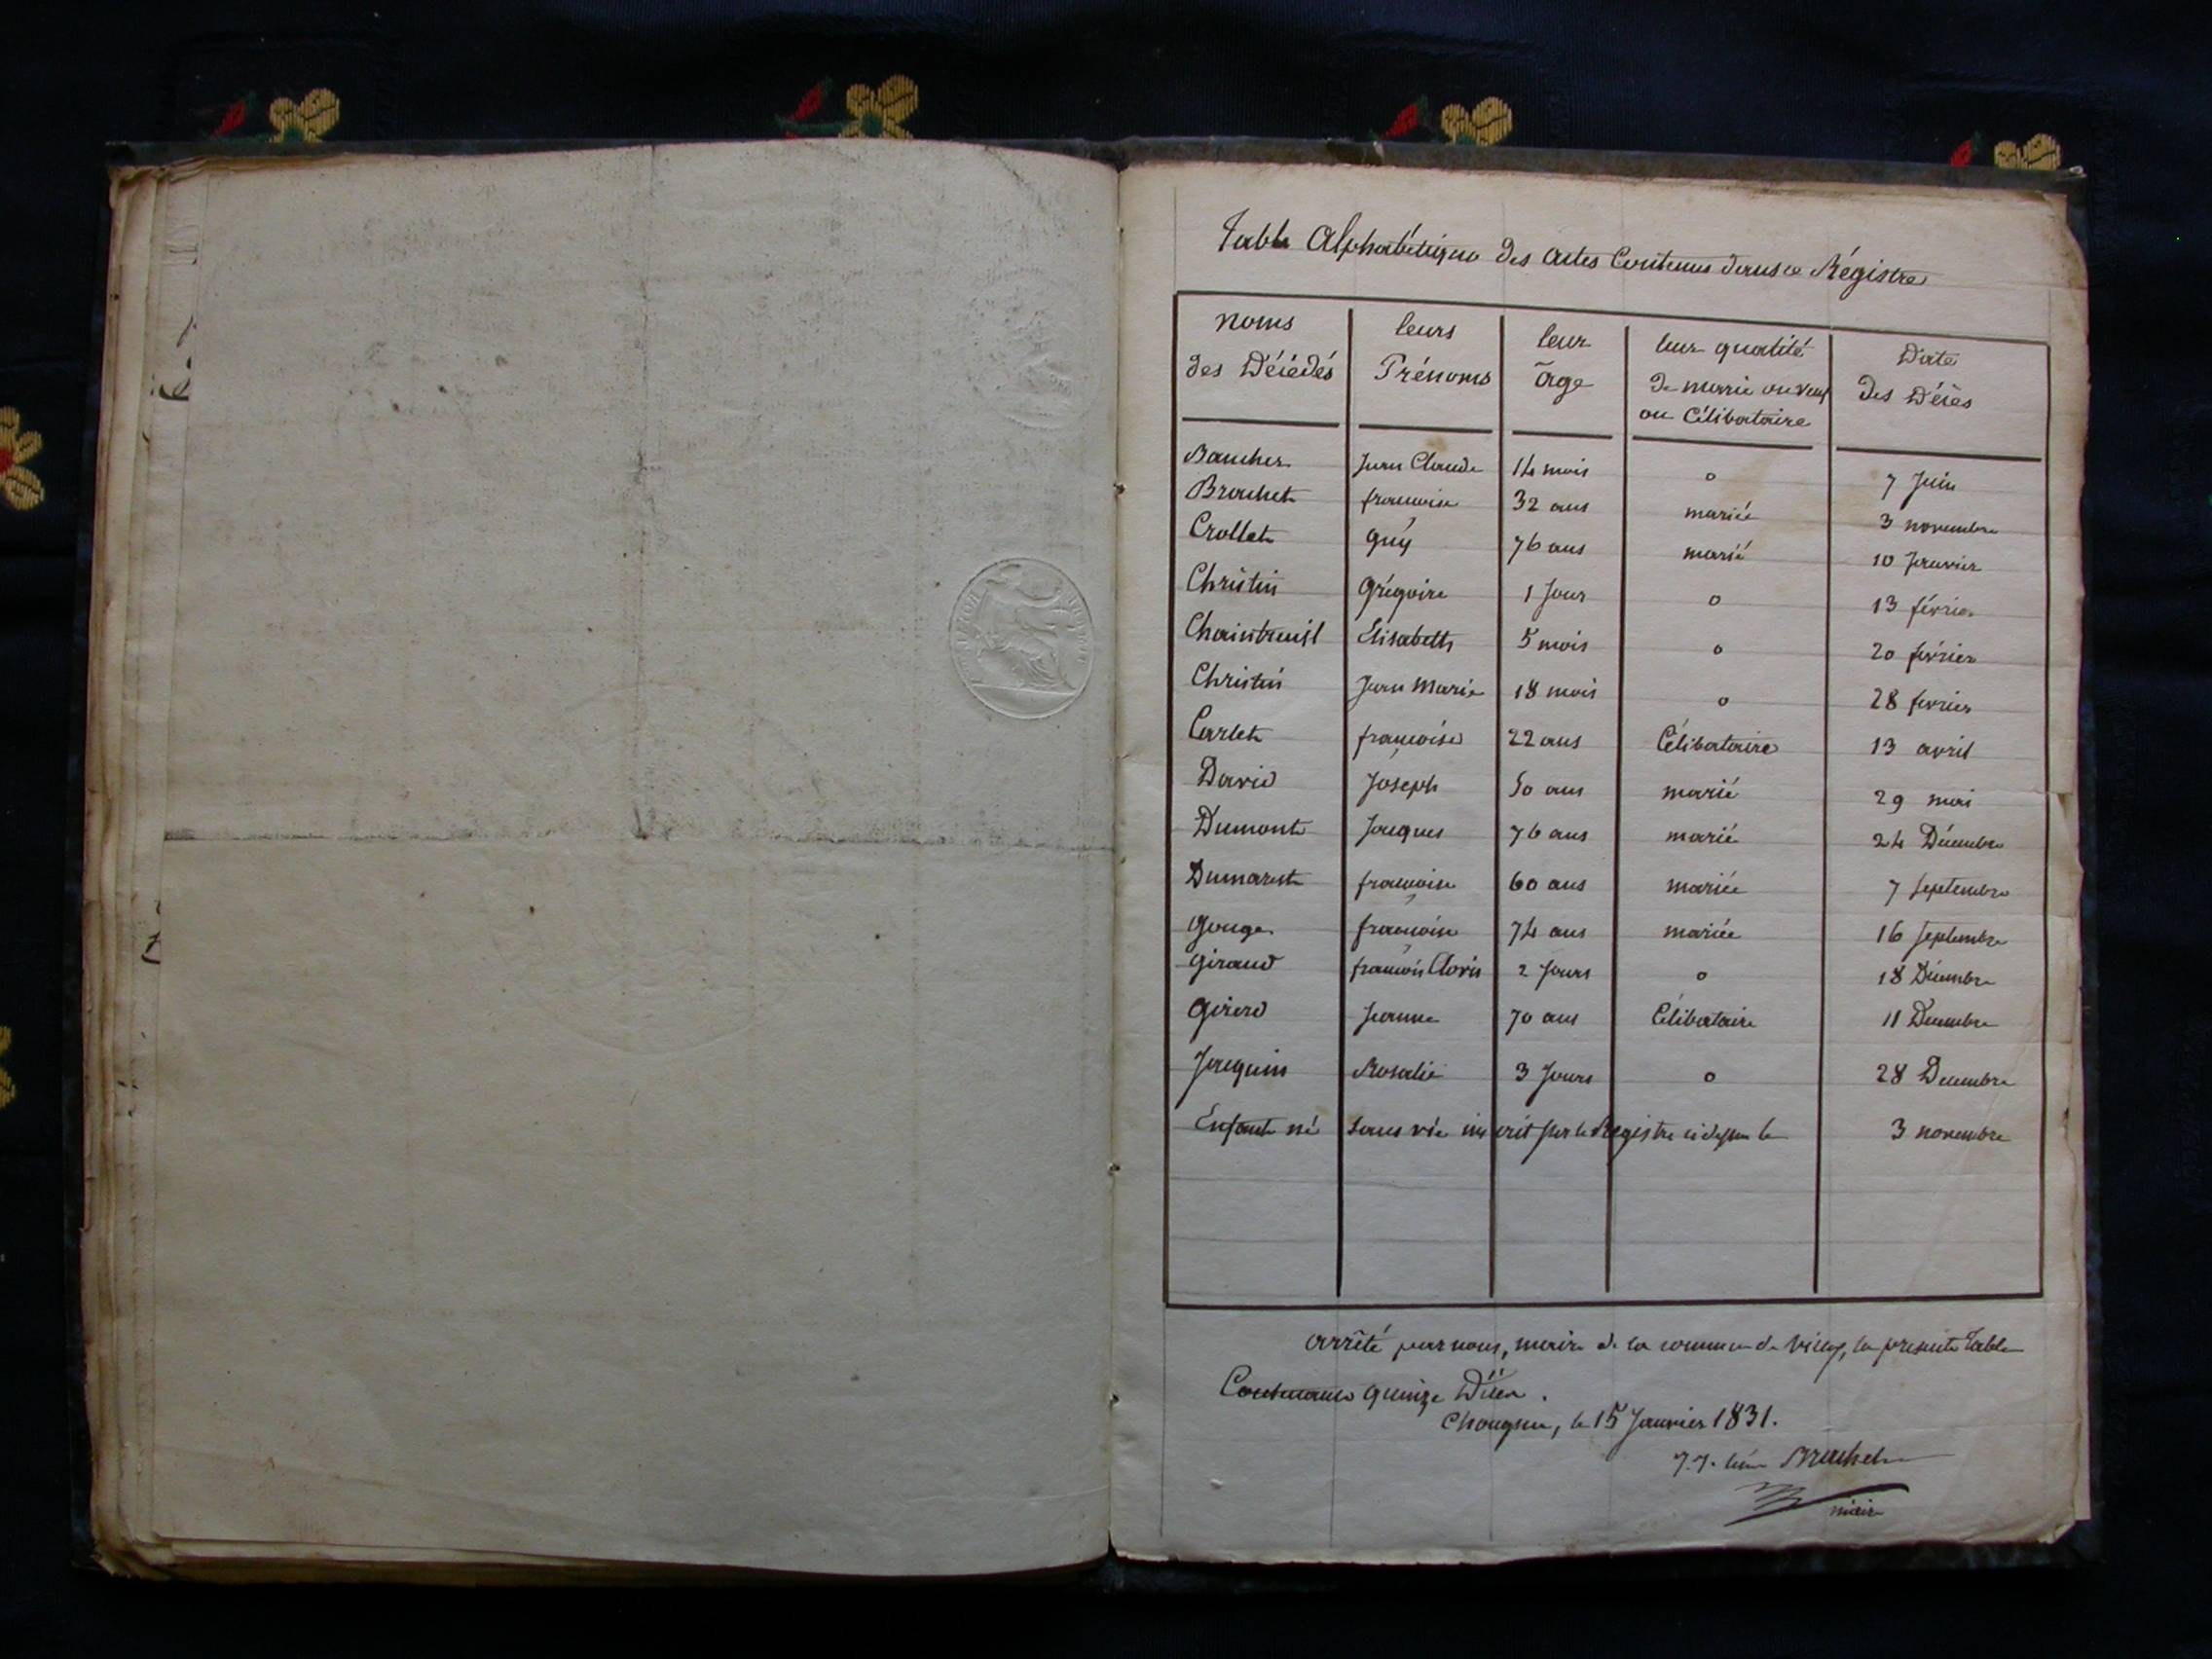 Table Alphabétique des actes Contenus dans ce Régistre
noms des Décédés | leurs Prénoms | leur âge | leur qualité de marié ou veuf ou Célibataire | Date des Décès
Baucher Jean Claude 14 mois o 7 Juin
Brachet francoise 32 ans mariée 3 novembre
Crollet guy 76 ans marié 10 Janvier
Christin Grégoire 1 Jour o 13 février
Chaintreuil Elisabeth 5 mois o 20 février
Christin Jean Marie 18 mois o 28 fevrier
Carlet francoise 22 ans Célibataire 13 avril
David Joseph 50 ans marié 29 mai
Dumont Jacques 76 ans marié 24 Décembre
Dumarest francoise 60 ans mariée 7 Septembre
Gouge françoise 74 ans mariée 16 Septembre
Giraud françois Clovis 2 Jours o 18 Décembre
Girerd Jeanne 70 ans Célibataire 11 Decembre
Jacquin Rosalie 3 Jours o 28 Decembre
Enfant né sans vie inscrit sur le Régistre ci dessus le 3 novembre
arrêté par nous, maire de la commune de la présente Table
Contenant quinze Décès.
le 15 Janvier 1831.
J. J. Brachet
maire